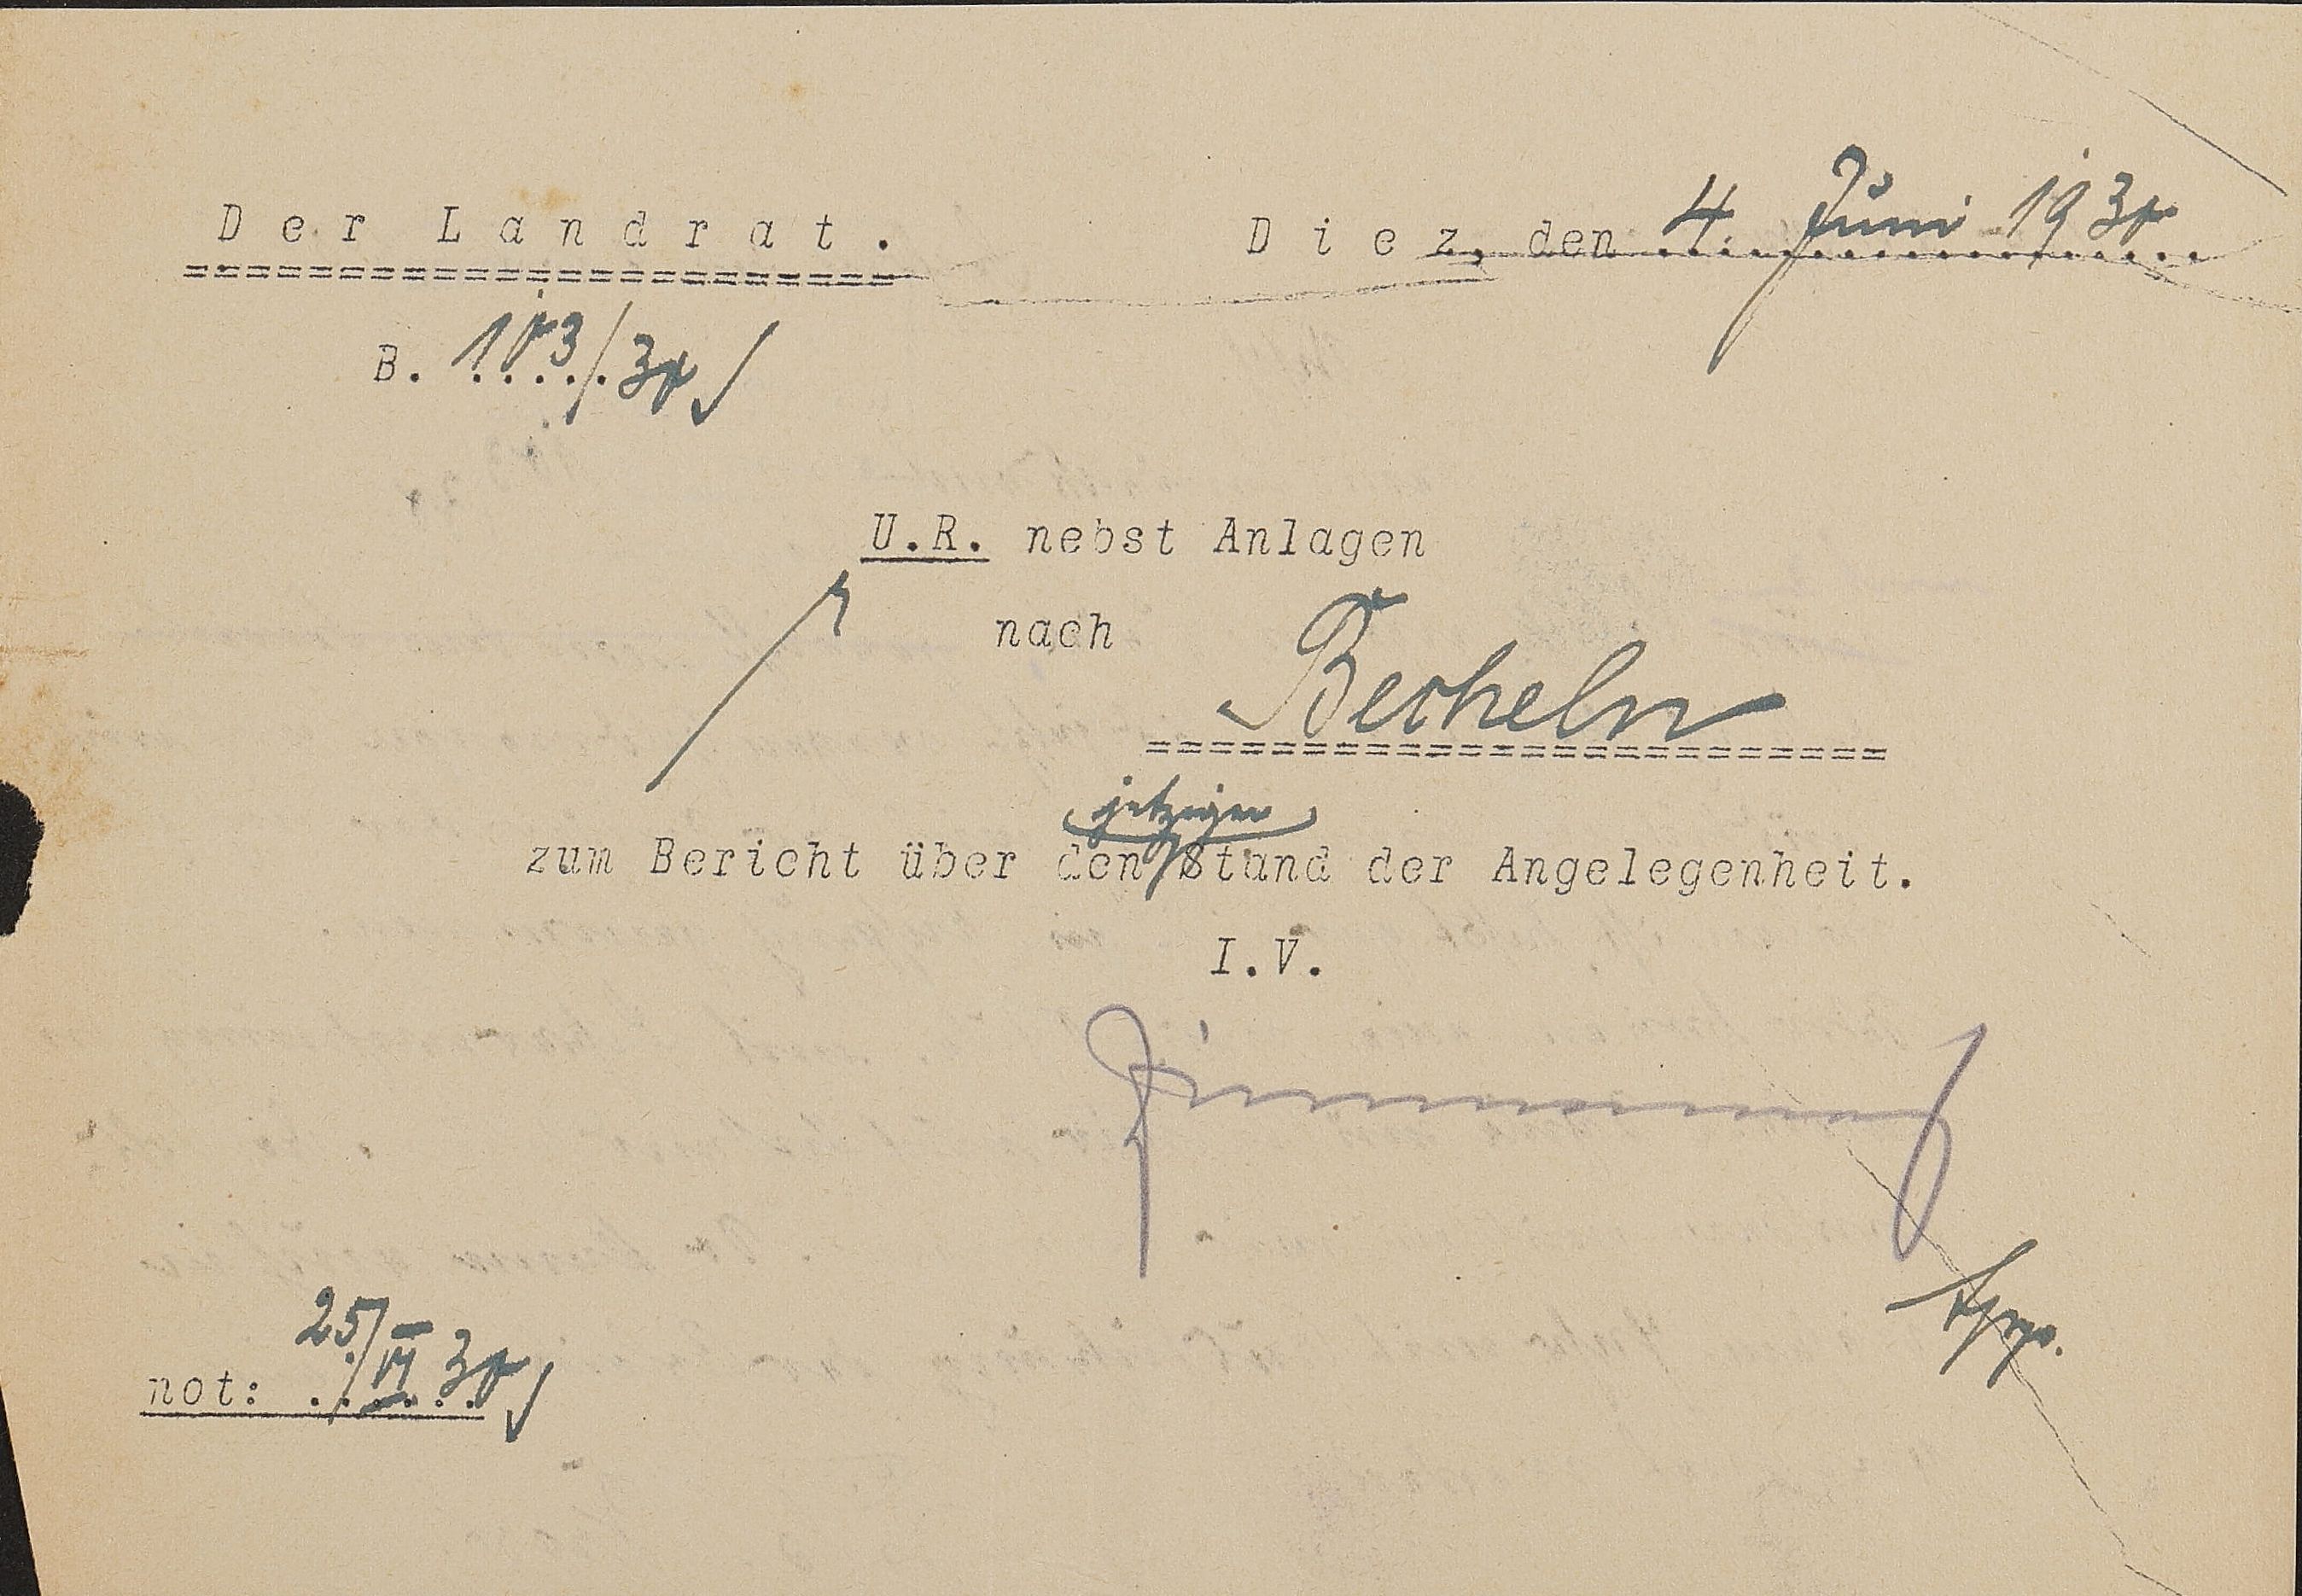 Der Landrat.
Diez, den 4. Juni 1938
B. 183/38
U.R. nebst Anlagen
nach Becheln
jetzigen
zum Bericht über den Stand der Angelegenheit.
I.V.
Zimmermann
not: 25/VI 38